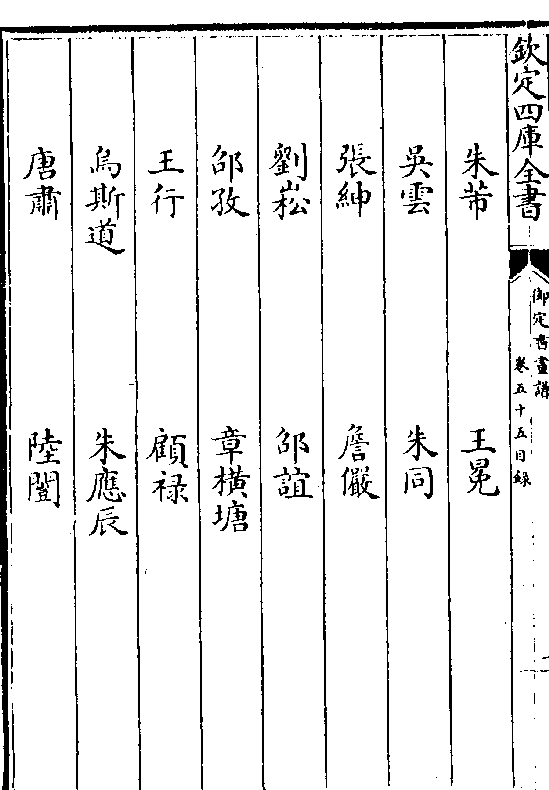 欽定四庫全書
御定書畫譜
卷五十五目錄
朱芾 王冕
吳雲 朱同
張紳 詹儼
劉崧 邵誼
邵孜 章橫塘
王行 顧祿
烏斯道 朱應辰
唐肅 陸闓